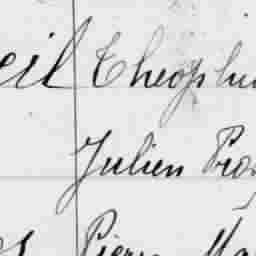 eil Theophi
Julien Pro
Pierre Ma